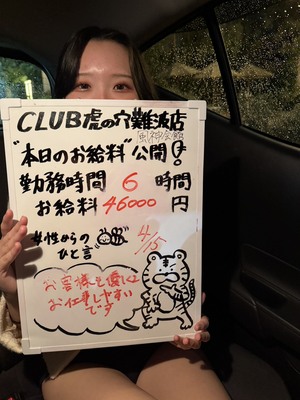 CLUB虎の穴難波店
"本日のお給料"公開!
勤務時間 6 時間
お給料 46000 円
女性からの
ひと言
4/15
お客様も優しく
お仕事しやすい
です